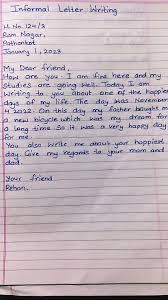 Informal Letter Writing
H. No. 124/3
Ram Nagar,
Pathankot
January 1, 2023
My Dear friend,
How are you I am fine here and my
Studies are going Well. Today I am
Writing to you about one of the happiest
days of my life. The day was November
4 2022. On this day my father bought me
a new bicycle which was my dream for
a long time So it was a very happy day
for me.
You also Write me about your happiest
day. Give my regards to your mom and
dad.
Your friend
Rehan.